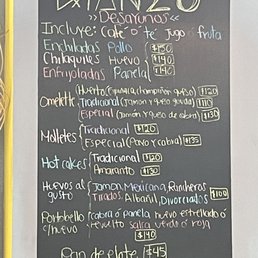 Desayunos
Incluye: Café o té jugo o fruta
Enchiladas Pollo $150
Chilaquiles Huevo $140
Enfrijoladas Panela $140
Huerto (Espinaca, champiñon, queso) $120
Omelette Tradicional (Jamon y queso gouda) $110
Especial (Jamón y queso de cabra) $130
Molletes Tradicional $120
Especial (Pavo y cabra) $135
Hot cakes Tradicional $120
Amaranto $130
Huevos al Jamon, Mexicana, Rancheros
gusto Tirados, Albañil, Divorciados $100
Portobello Cabra ó panela, huevo estrellado ó
c/huevo revuelto salsa verde ó roja
$140
Pan de elote $45